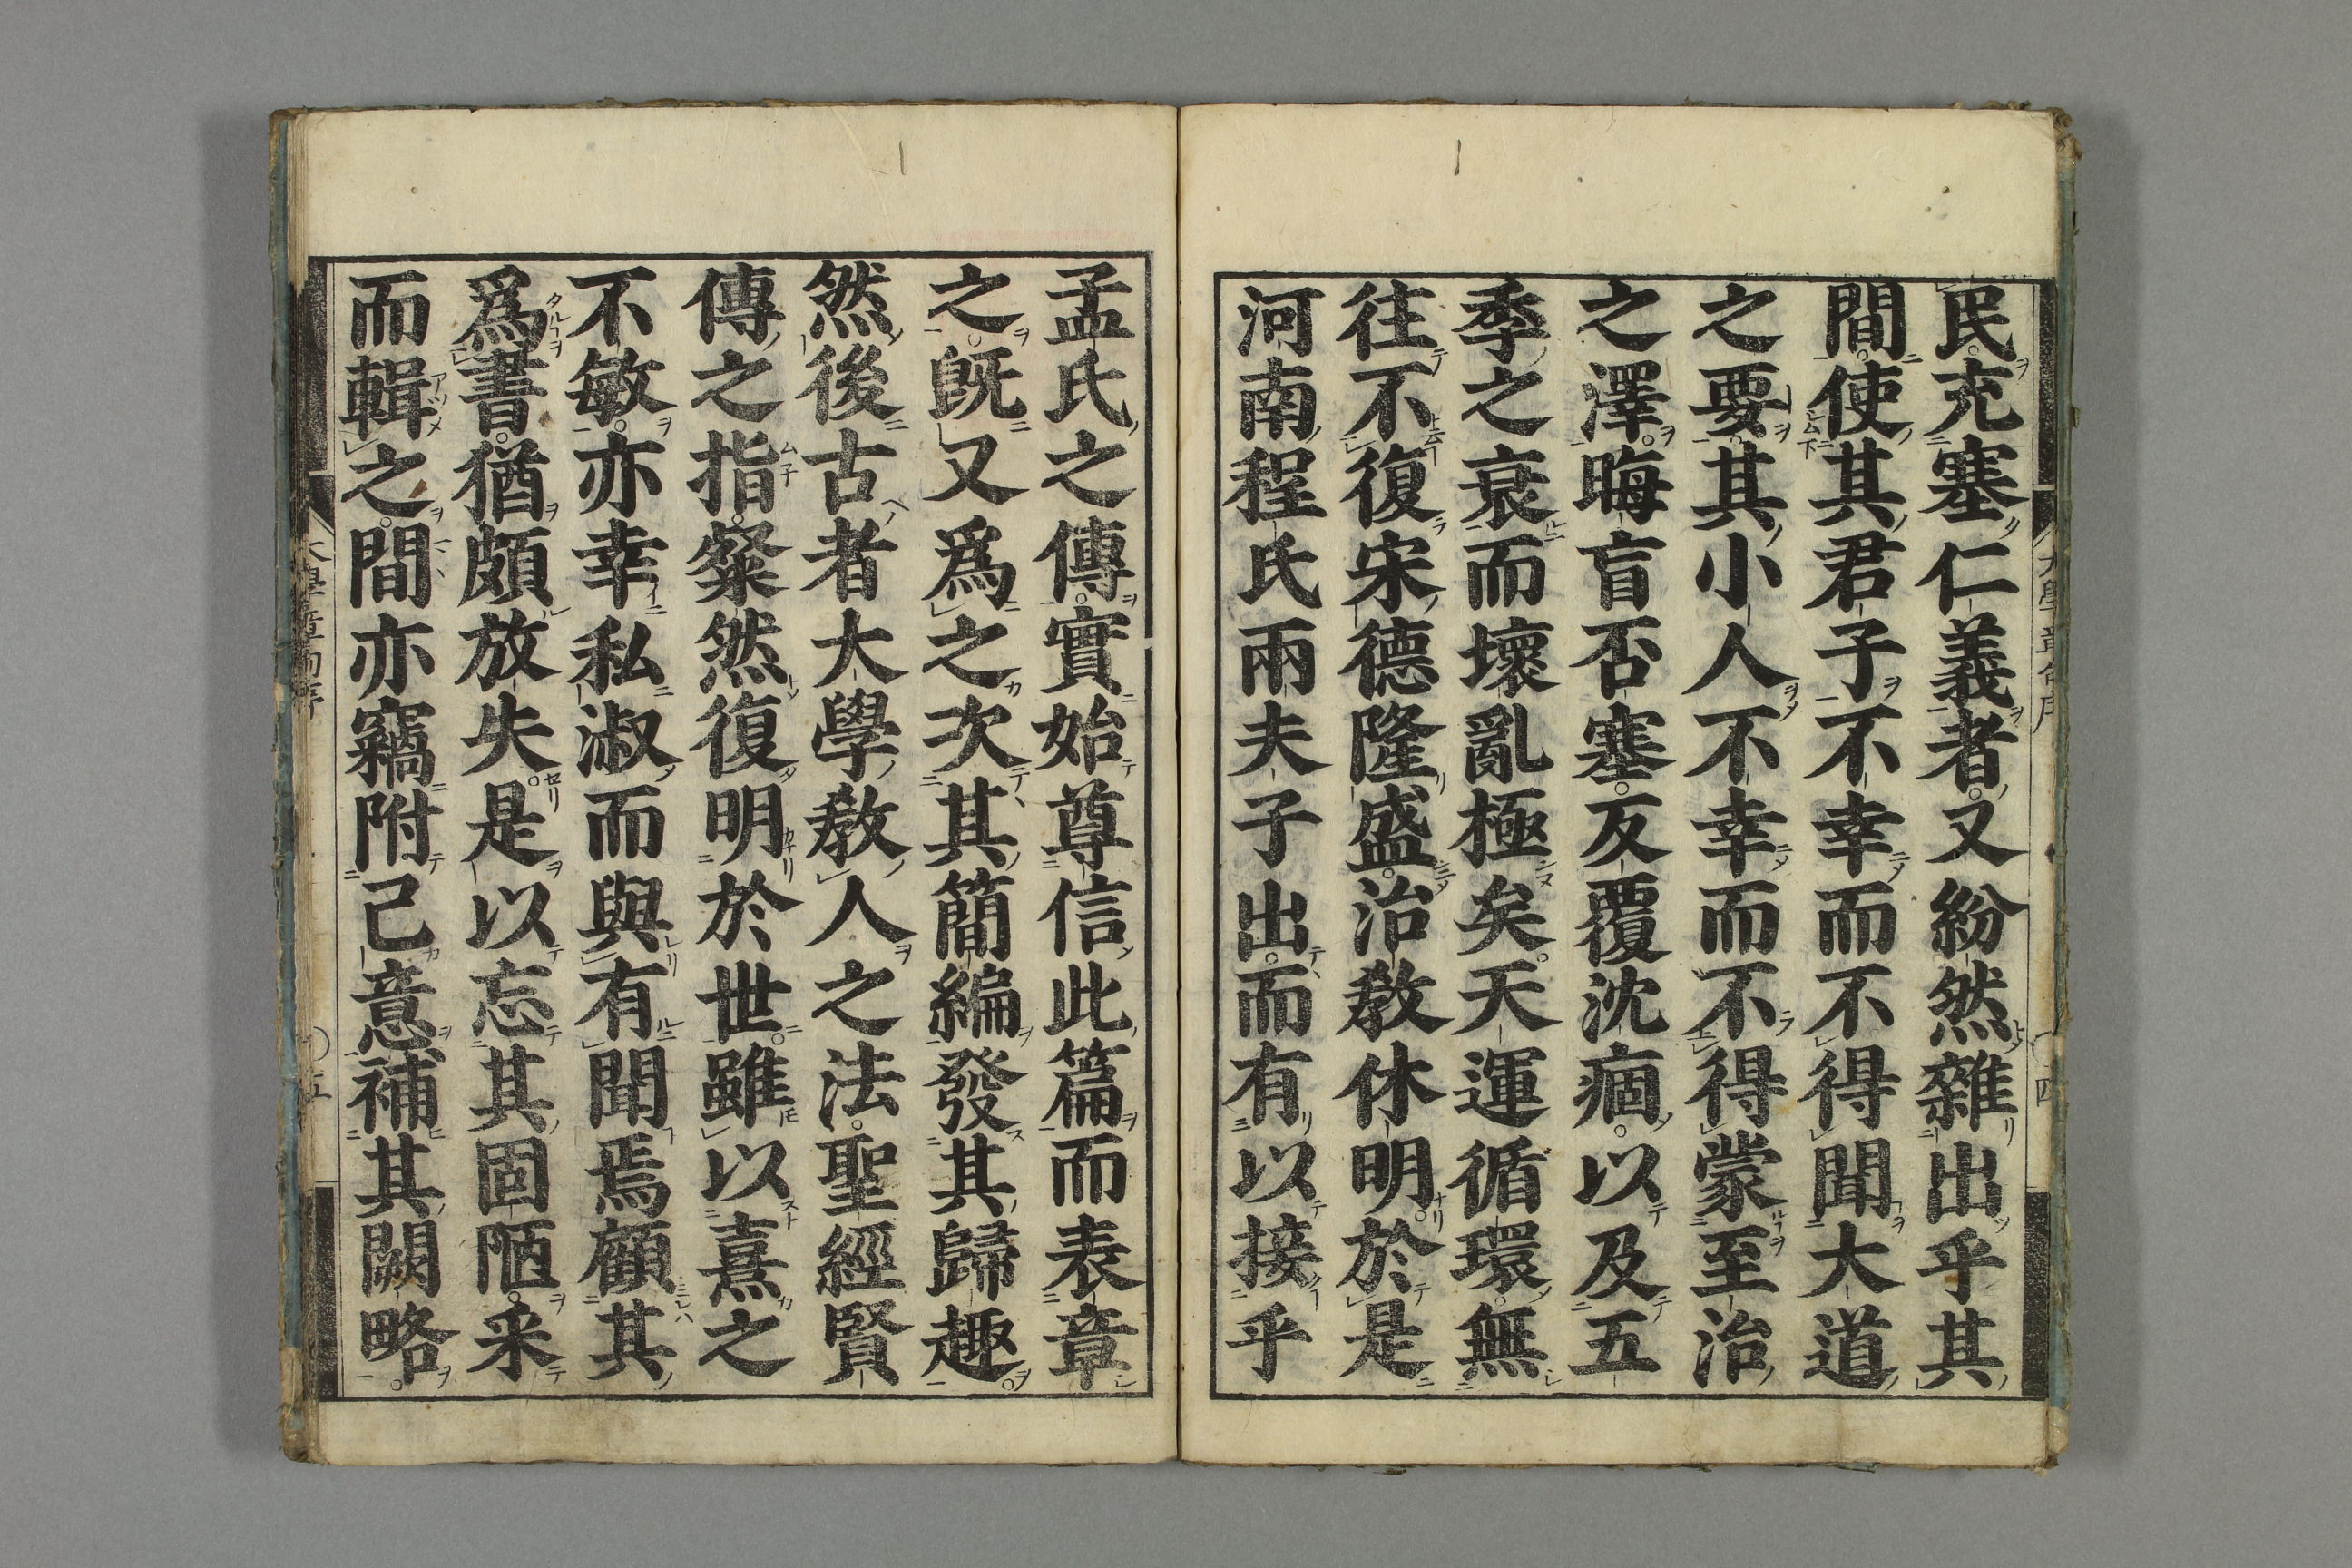 民充塞仁義者又紛然雜出乎其
間使其君子不幸而不得聞大道
之要其小人不幸而不得蒙至治
之澤晦盲否塞反覆沈痼以及五
季之衰而壞亂極矣天運循環無
往不復宋德隆盛治敎休明於是
河南程氏兩夫子出而有以接乎
孟氏之傳實始尊信此篇而表章
之旣又爲之次其簡編發其歸趣
然後古者大學敎人之法聖經賢
傳之指粲然復明於世雖以熹之
不敏亦幸私淑而與有聞焉顧其
爲書猶頗放失是以忘其固陋采
而輯之間亦竊附己意補其闕略